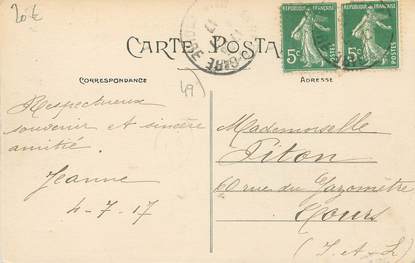 20 €
CARTE POSTALE
RÉPUBLIQUE FRANÇAISE
5c
POSTES
RÉPUBLIQUE FRANÇAISE
5c
POSTES
GARE
17
CORRESPONDANCE
49
ADRESSE
Respectueux
souvenir et sincère
amitié.
Jeanne
4-7-17
Mademoiselle
Piton
rue du Gazomètre
Tours
(I-et-L)